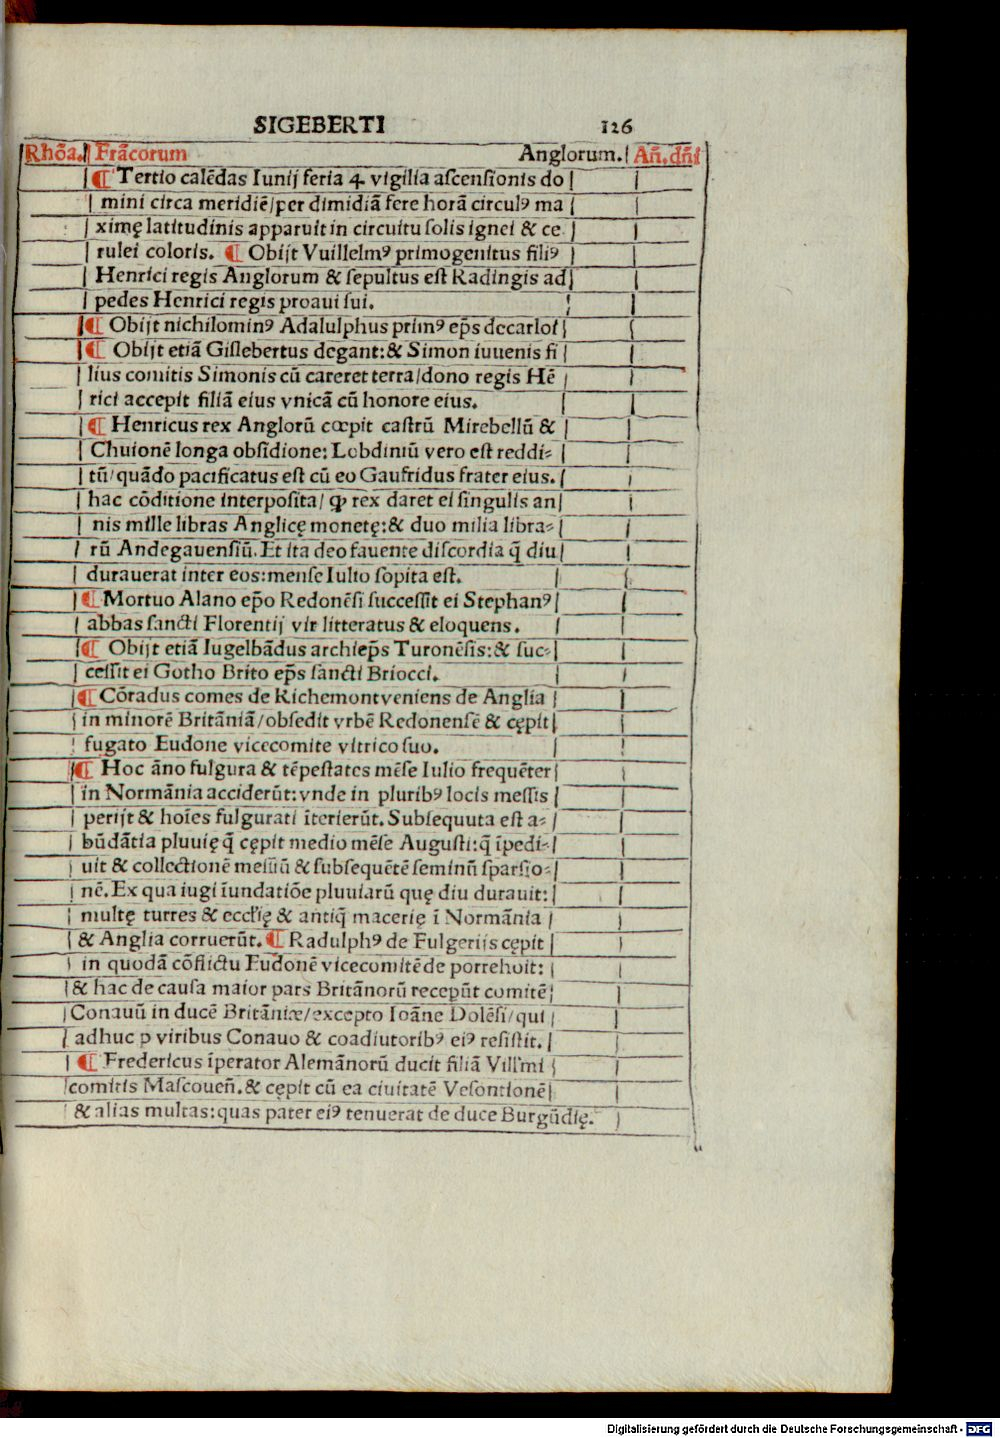 SIGEBERTI 126
Rhõa. Frãcorum Anglorum. Añ. dñi
¶ Tertio calẽdas Iunij feria 4 vigilia ascensionis do
mini circa meridiẽ/per dimidiã fere horã circulꝰ ma
ximę latitudinis apparuit in circuitu solis ignei & ce
rulei coloris. ¶ Obijt Vuillelmꝰ primogenitus filiꝰ
Henrici regis Anglorum & sepultus est Radingis ad
pedes Henrici regis proaui sui.
¶ Obijt nichilominꝰ Adalulphus primꝰ ep̃s decarlol
¶ Obijt etiã Gislebertus degant: & Simon iuuenis fi
lius comitis Simonis cũ careret terra/dono regis Hẽ
rici accepit filiã eius vnicã cũ honore eius.
¶ Henricus rex Anglorũ cœpit castrũ Mirebellũ &
Chuionẽ longa obsidione: Lobdiniũ vero est reddi-
tũ/quãdo pacificatus est cũ eo Gaufridus frater eius.
hac cõditione interposita/ ꝙ rex daret ei singulis an
nis mille libras Anglicę monetę: & duo milia libra-
rũ Andegauensiũ. Et ita deo fauente discordia q̃ diu
durauerat inter eos: mense Iulio sopita est.
¶ Mortuo Alano ep̃o Redonẽsi successit ei Stephanꝰ
abbas sancti Florentij vir litteratus & eloquens.
¶ Obijt etiã Iugelbãdus archiep̃s Turonẽsis: & suc-
cessit ei Gotho Brito ep̃s sancti Briocci.
¶ Cõradus comes de Richemont veniens de Anglia
in minorẽ Britãniã/obsedit vrbẽ Redonensẽ & cępit
fugato Eudone vicecomite vitrico suo.
¶ Hoc ãno fulgura & tẽpestates mẽse Iulio frequẽter
in Normãnia acciderũt: vnde in pluribꝰ locis messis
perijt & hoĩes fulgurati ĩterierũt. Subsequuta est a-
bũdãtia pluuię q̃ cępit medio mẽse Augusti: q̃ ĩpedi-
uit & collectionẽ messiũ & subsequẽtẽ seminũ sparsio-
nẽ. Ex qua iugi ĩundatiõe pluuiarũ quę diu durauit:
multę turres & eccl̃ię & antiq̃ macerię ĩ Normãnia
& Anglia corruerũt. ¶ Radulphꝰ de Fulgerijs cępit
in quodã cõflictu Eudonẽ vicecomitẽ de porrehoit:
& hac de causa maior pars Britãnorũ recepũt comitẽ
Conauũ in ducẽ Britãniæ/excepto Ioãne Dolẽsi/qui
adhuc p viribus Conauo & coadiutoribꝰ eiꝰ resistit.
¶ Fredericus ĩperator Alemãnorũ ducit filiã Villmi
comitis Mascoueñ. & cępit cũ ea ciuitatẽ Vesontionẽ
& alias multas: quas pater eiꝰ tenuerat de duce Burgũdię.
Digitalisierung gefördert durch die Deutsche Forschungsgemeinschaft - DFG